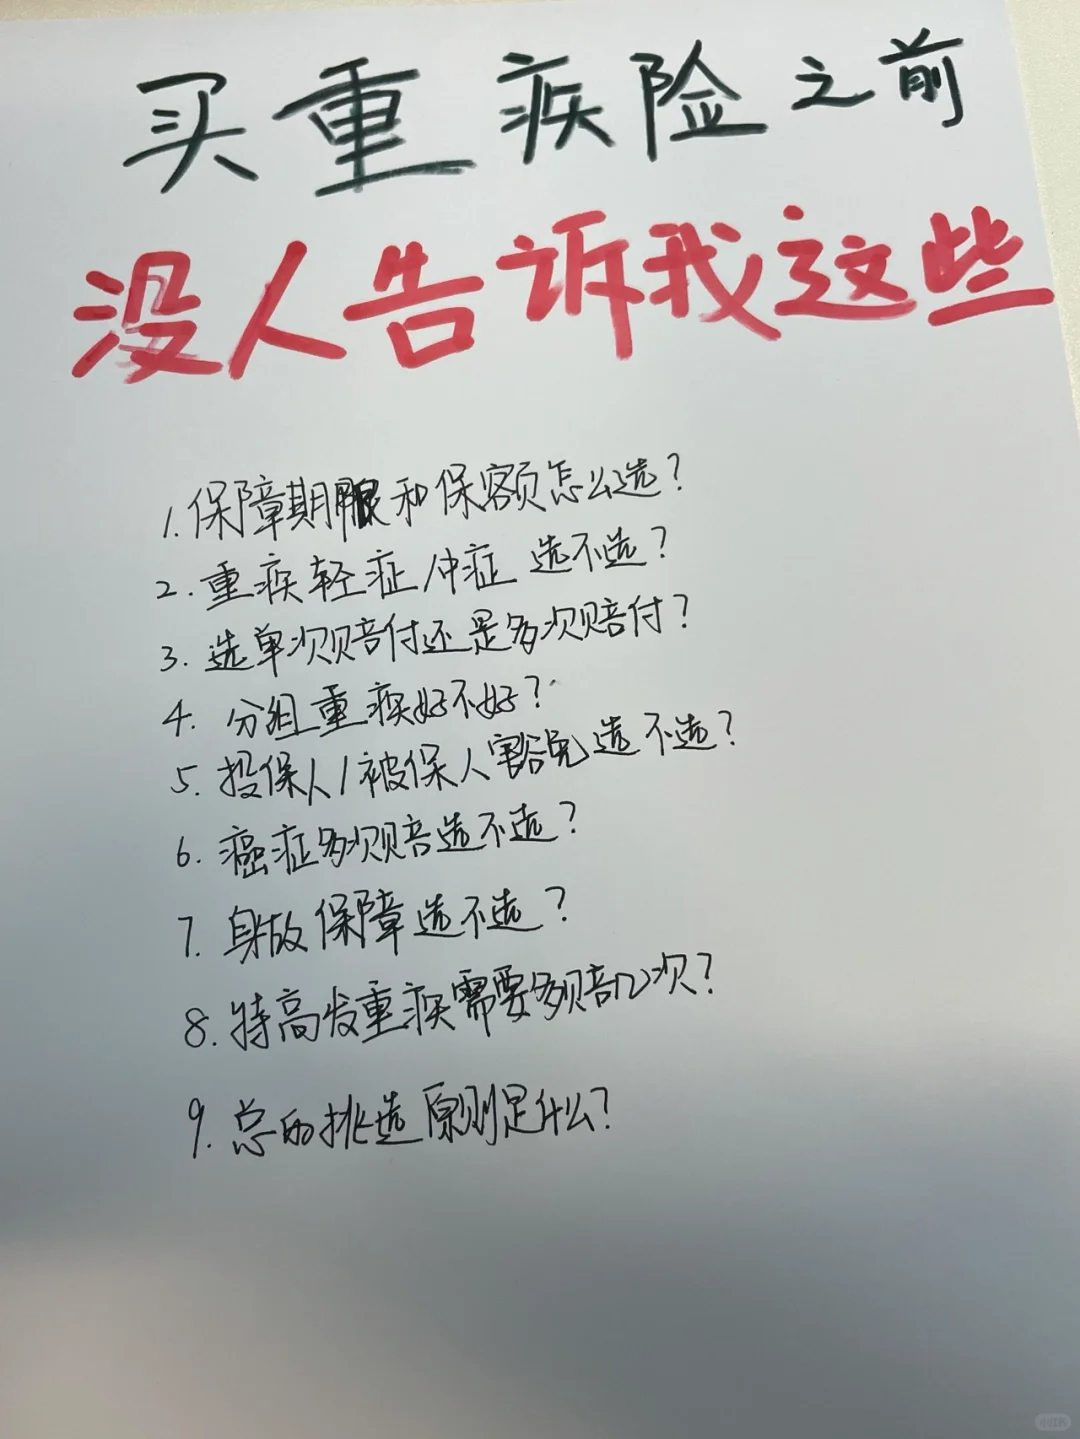 买重疾险之前
没人告诉我这些
1. 保障期限和保额怎么选？
2. 重疾轻症/中症 选不选？
3. 选单次赔付还是多次赔付？
4. 分组重疾好不好？
5. 投保人/被保人豁免选不选？
6. 癌症多次赔选不选？
7. 身故保障选不选？
8. 特高发重疾需要多赔几次？
9. 总的挑选原则是什么？